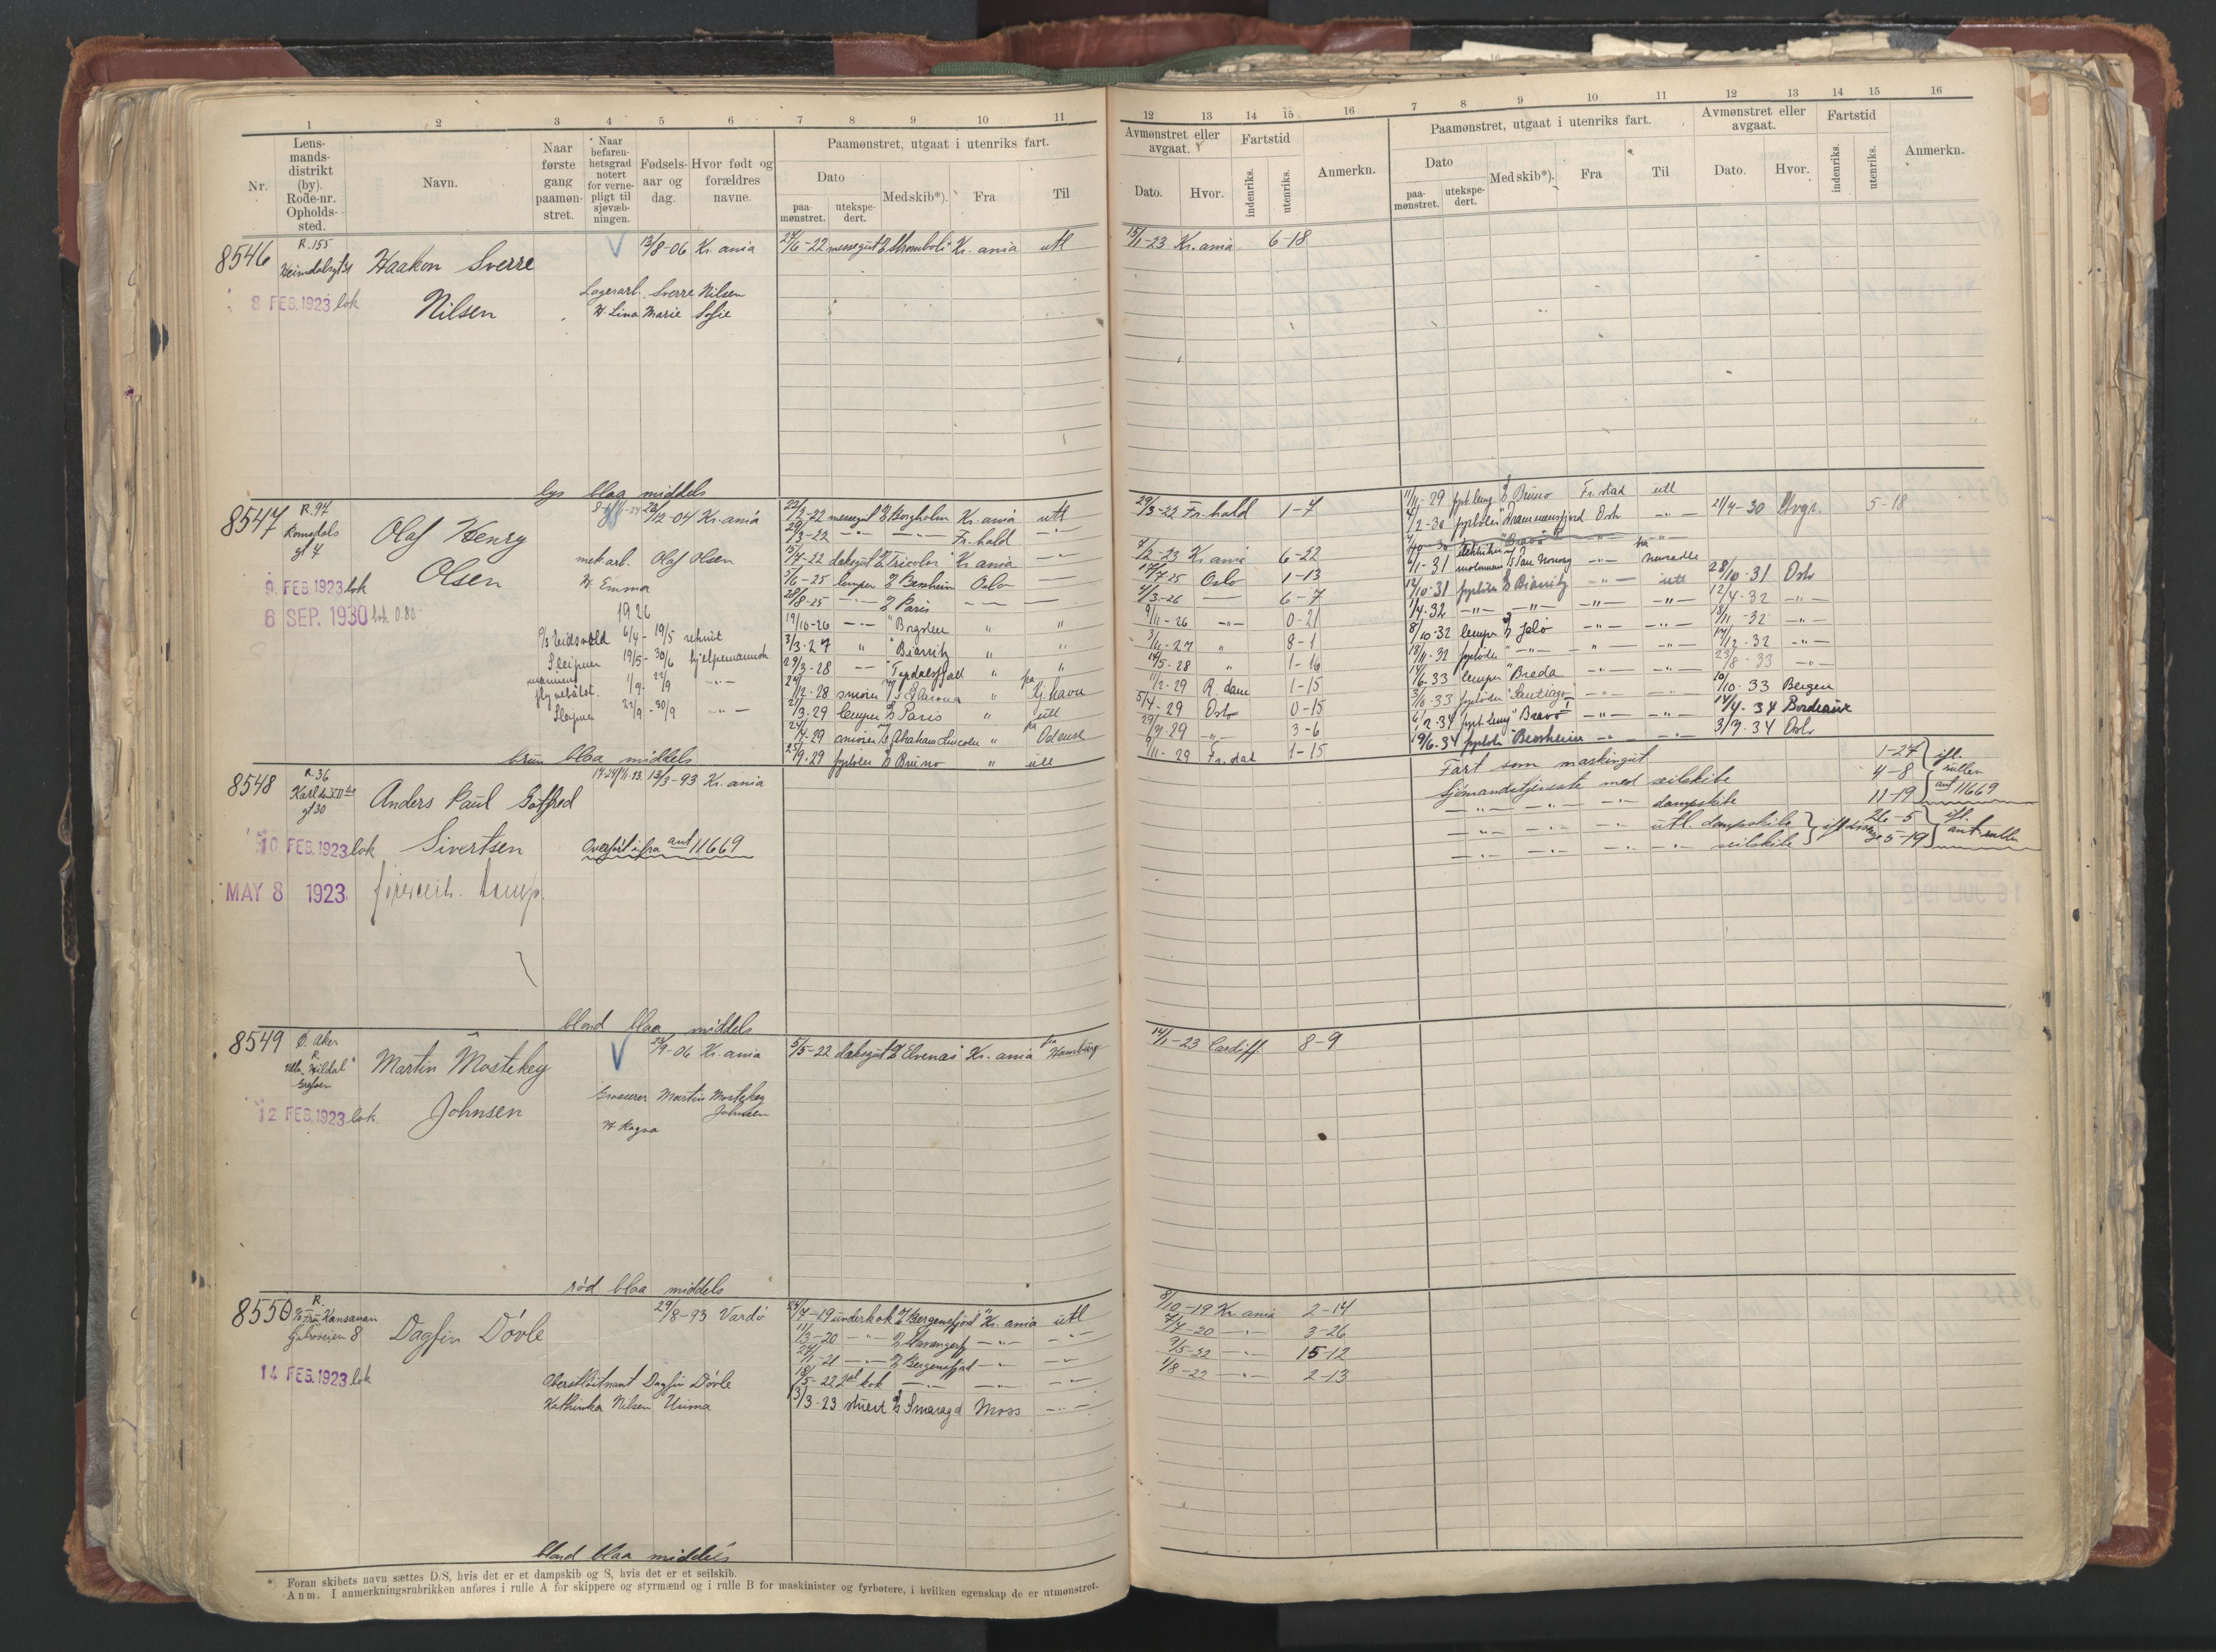 1 2 3 4 5 6 7 8 9 10 11
Nr.
Lens-
mands-
distrikt
(by).
Rode-nr.
Opholds-
sted.
Navn.
Naar
første
gang
paamøn-
stret.
Naar
befaren-
hetsgrad
notert
for verne-
pligt til
sjøvæb-
ningen.
Fødsels-
aar og
dag.
Hvor født og
forældres
navne.
Paamønstret, utgaat i utenriks fart.
Dato
paa-
mønstret.
utekspe-
dert.
Med skib*).
Fra
Til
8546
R. 155
Heimdalsgt
8 FEB. 1923 lok
Haakon Sverre
Nilsen
13/8-06 Kr.ania
Lagerarb. Sverre Nilsen
H. Lina Marie Sofie
27/6-22 messegut Stromboli Kr.ania utl
lys blaa middels
8547
R. 97
Romsdals
gt 4
9. FEB. 1923 lok
6 SEP. 1930 lok 0.80
Olaf Henry
Olsen
12-04 Kr.ania
mek.arb. Olaf Olsen
H. Emma
1926
D/S Eidsvold 6/4 - 19/5 rekrut
Sleipner 19/5 - 30/6 hjelpemannsk
1/9 - 22/9
Sleipner 22/9 - 30/9
22/2-22 messegut Borgholm Kr.ania utl
29/3-22 Fr.hald
15/7-22 dæksgut Tricolor Kr.ania
5/6-25 lemper Bessheim Oslo
28/8-25 Paris
19/10-26 Borgsten
3/3-27 Biarritz
29/3-28 Topdalsfjord
12-28 smører Glarona fra Kj.havn
21/3-29 lemper Paris utl
24/4-29 smører Abraham Lincoln fra Odense
25/9-29 fyrbøter Bruno utl
brun blaa middels
8548
R. 36
Karl den XII tes
gt 30
10 FEB. 1923 lok
MAY 8 1923
Anders Paul Gotfred
Sivertsen
13/3-93 Kr.ania
Overført ifra ant 11669
blond blaa middels
8549
Ø. Aker
R.
Villa "Hildal"
Grefsen
12 FEB. 1923 lok
Martin Mostekey
Johnsen
9-06 Kr.ania
Grosserer Martin Mostekey
Johnsen
H. Ragna
5/5-22 dæksgut Elvenæs Kr.ania fra Hamburg
rød blaa middels
8550
R.
14 FEB. 1923 lok
Dagfin Døvle
29/8-93 Vardø
Oberstløitnant Dagfin Døvle
Kathinka Nilsen Unima
7-19 underkok Bergensfjord Kr.ania utl
11/3-20 Stavangerfj
1-21 Bergensfjord
18/5-22 2den kok
13/3-23 stuert Smaragd Moss
blond blaa middels
*) Foran skibets navn sættes D/S, hvis det er et dampskib og S, hvis det er et seilskib.
Anm. I anmerkningsrubrikken anføres i rulle A for skippere og styrmænd og i rulle B for maskinister og fyrbøtere, i hvilken egenskap de er utmønstret.
12 13 14 15 16 7 8 9 10 11 12 13 14 15 16
Avmønstret eller
avgaat.
Dato. Hvor.
Fartstid
indenriks.
utenriks.
Anmerkn.
Paamønstret, utgaat i utenriks fart.
Dato
paa-
mønstret.
utekspe-
dert.
Med skib*).
Fra
Til
Avmønstret eller
avgaat.
Dato. Hvor.
Fartstid
indenriks.
utenriks.
Anmerkn.
13/1-23 Kr.ania 6-18
29/3-22 Fr.hald 1-7
7/12-23 Kr.ania 6-22
17/7-25 Oslo 1-13
4/3-26 6-7
9/11-26 0-21
3/11-27 8-1
14/5-28 1-16
11/2-29 R.dam 1-15
5/4-29 Oslo 0-15
29/7-29 3-6
9/11-29 Fr.stad 1-15
11/11-29 fyrb.lemp. Bruno Fr.stad utl
4/2-30 fyrbøter Drammensfjord Oslo 21/7-30 Hvgr. 5-18
Bravo
6/1-31 elektriker
motormann Pan Norway fra Newcastle
14/10-31 fyrbøter Biarritz utl 28/10-31 Oslo
1/4-32 12/4-32
8/10-32 lemper Jelø 18/11-32
18/11-32 fyrbøter 14/12-32
14/6-33 lemper Breda 23/8-33
fyrbøter "Santiago" 20/10-33 Bergen
6/2-34 fyrb.lemp "Bravo I" 14/4-34 Bordeaux
19/6-34 fyrbøter "Bessheim" 3/7-34 Oslo
Fart som maskingut 1-27
Sjømandstjeneste med seilskibe 4-8
dampskibe 11-19
ifl. rullen ant 11669
utl. dampskibe 26-5
seilskibe 5-19
ifl. ant rullen
14/1-23 Cardiff 8-9
8/10-19 Kr.ania 2-14
7/7-20 3-26
9/5-22 15-12
1/8-22 2-13